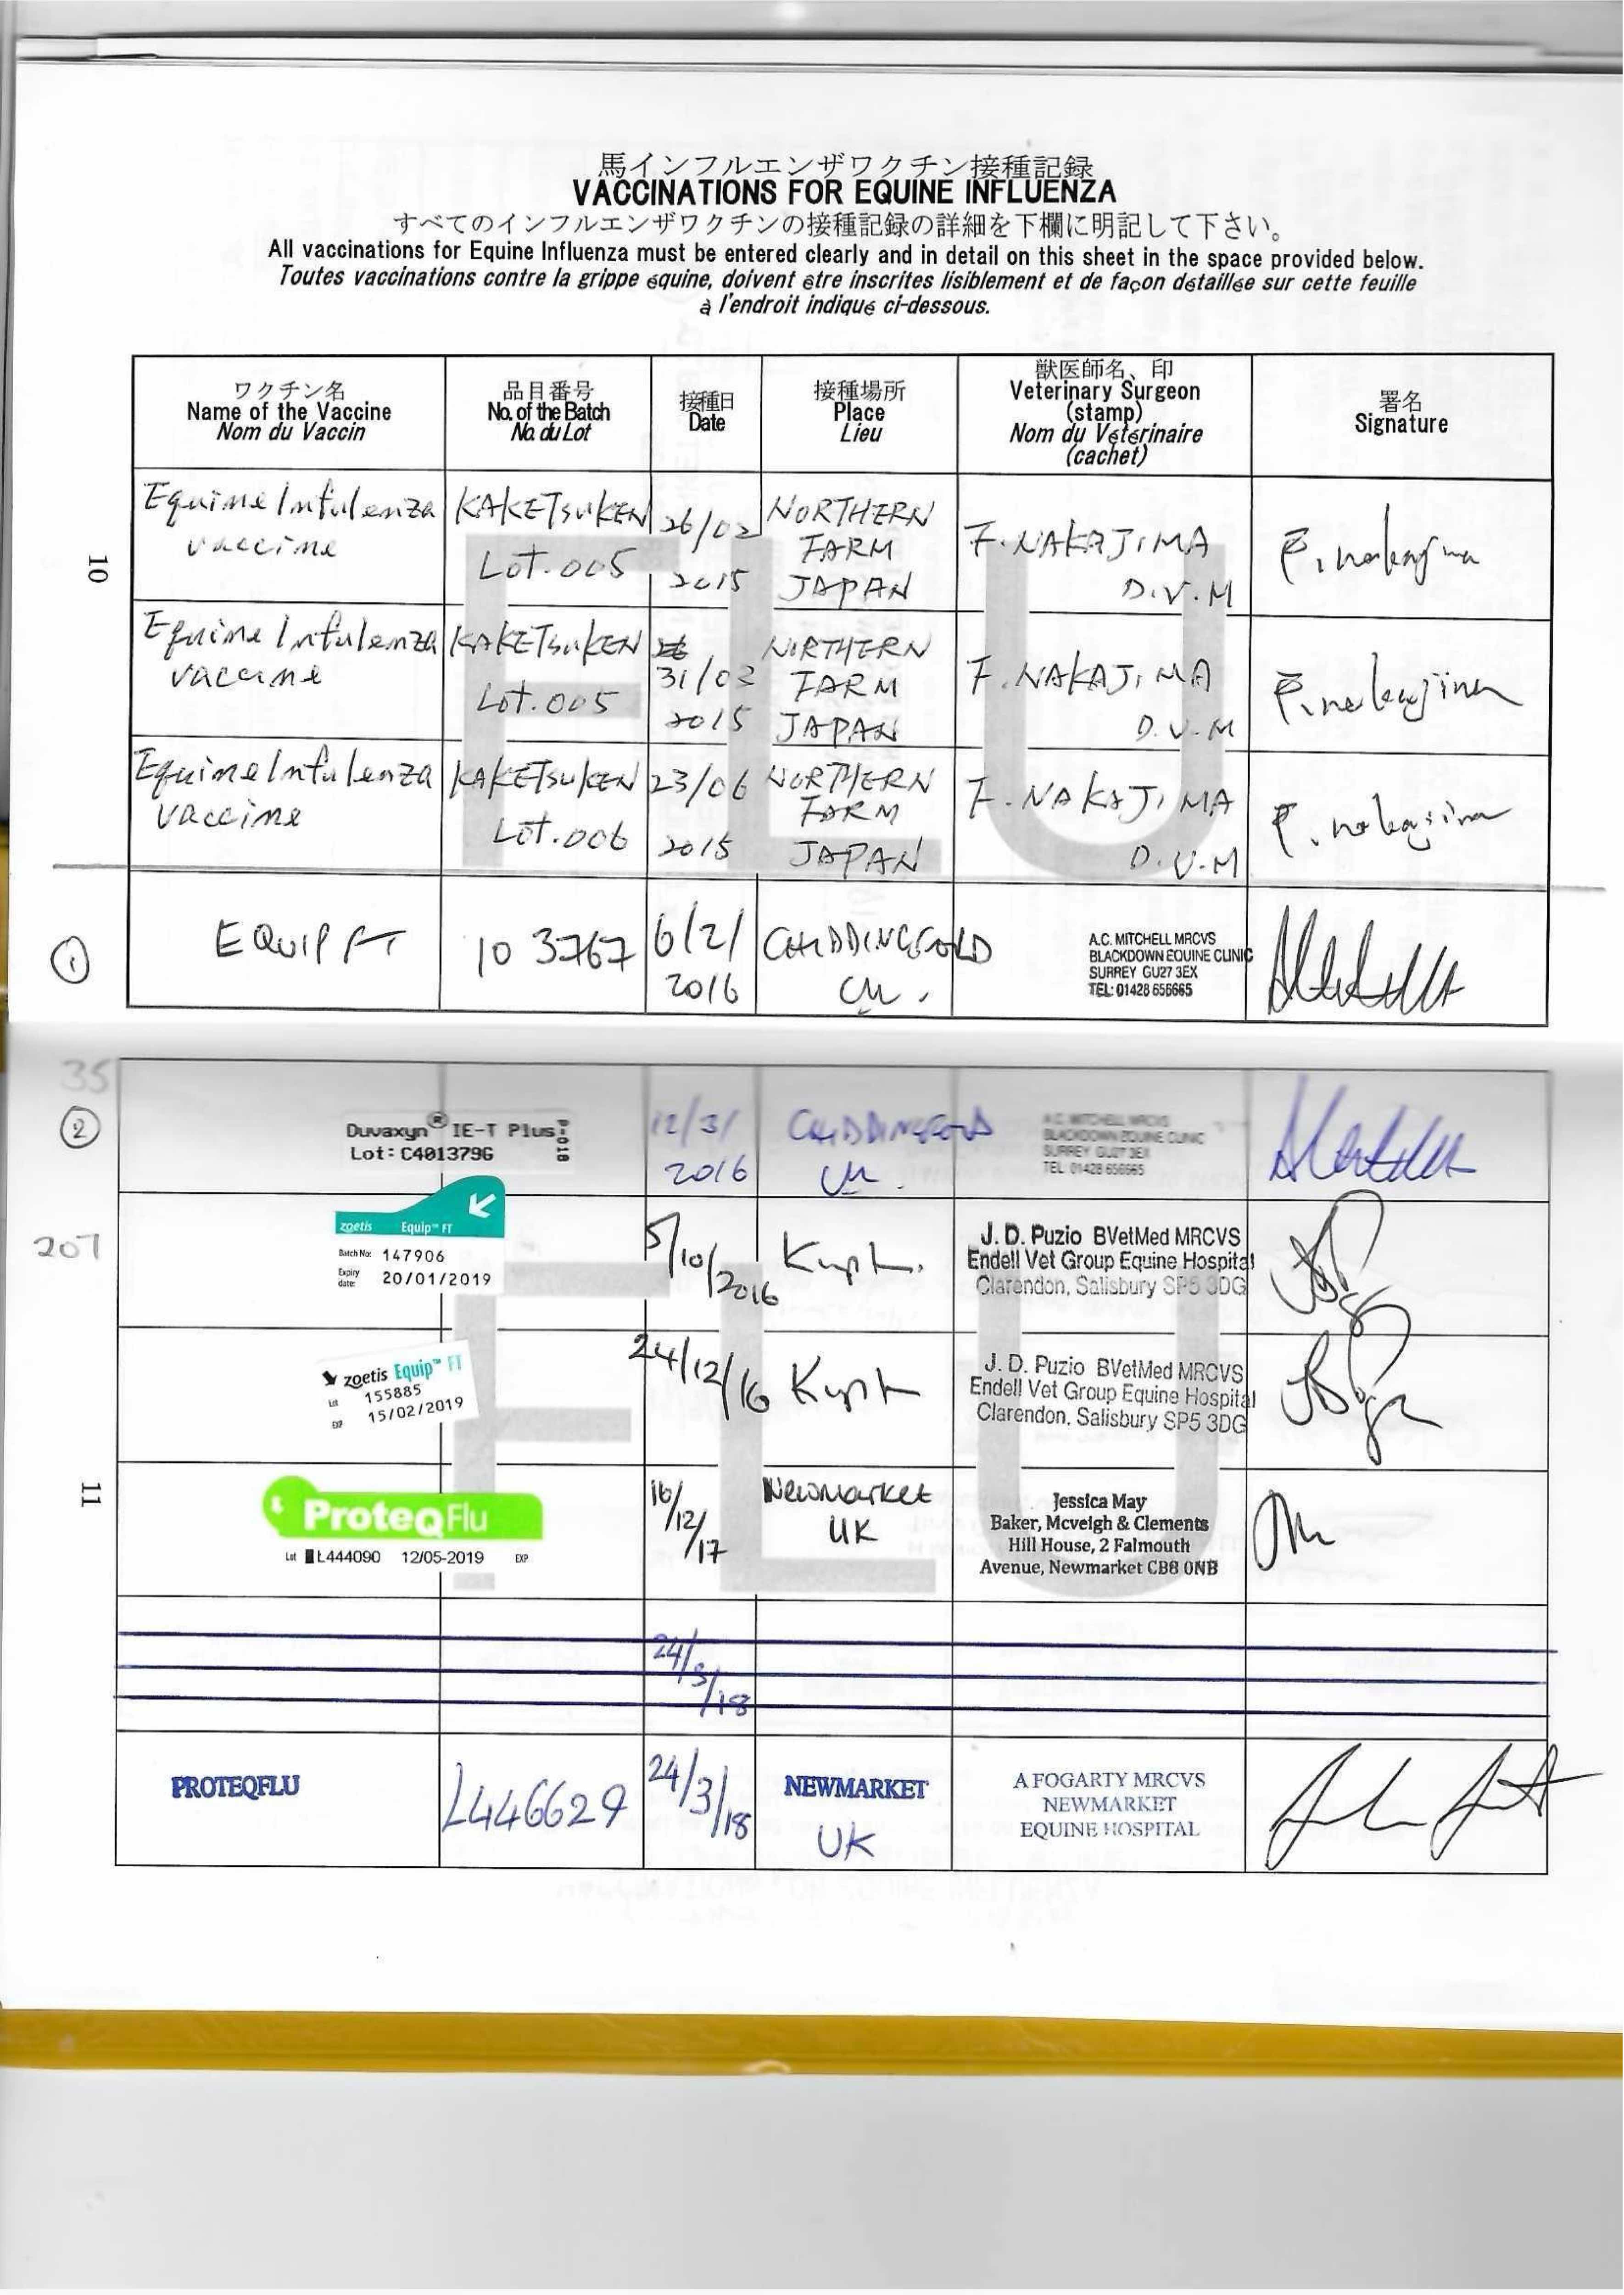 馬インフルエンザワクチン接種記録
VACCINATIONS FOR EQUINE INFLUENZA
すべてのインフルエンザワクチンの接種記録の詳細を下欄に明記して下さい。
All vaccinations for Equine Influenza must be entered clearly and in detail on this sheet in the space provided below.
Toutes vaccinations contre la grippe équine, doivent être inscrites lisiblement et de façon détaillée sur cette feuille
à l'endroit indiqué ci-dessous.
ワクチン名
Name of the Vaccine
Nom du Vaccin
品目番号
No. of the Batch
No. du Lot
接種日
Date
接種場所
Place
Lieu
獣医師名、印
Veterinary Surgeon
(stamp)
Nom du Vétérinaire
(cachet)
署名
Signature
10
FLU
Equine Infulenza
vaccine
KAKETSUKEN
Lot.005
26/02
2015
NORTHERN
FARM
JAPAN
F.NAKAJIMA
D.V.M
F. nakajima
Equine Infulenza
vaccine
KAKETSUKEN
Lot.005
31/03
2015
NORTHERN
FARM
JAPAN
F.NAKAJIMA
D.V.M
F. nakajima
Equine Infulenza
vaccine
KAKETSUKEN
Lot.006
23/06
2015
NORTHERN
FARM
JAPAN
F.NAKAJIMA
D.V.M
F. nakajima
①
EQUIP FT
103767
6/2/
2016
CHIDDINGFOLD
UK.
A.C. MITCHELL MRCVS
BLACKDOWN EQUINE CLINIC
SURREY GU27 3EX
TEL: 01428 656665
35
②
Duvaxyn® IE-T Plus
Lot: C401379G
12/3/
2016
CHIDDINGFOLD
UK.
A.C. MITCHELL MRCVS
BLACKDOWN EQUINE CLINIC
SURREY GU27 3EX
TEL 01428 656665
207
zoetis Equip™ FT
Batch No: 147906
Expiry date: 20/01/2019
5/10/2016
J. D. Puzio BVetMed MRCVS
Endell Vet Group Equine Hospital
Clarendon, Salisbury SP5 3DG
zoetis Equip™ FT
Lot 155885
EXP 15/02/2019
24/12/16
J. D. Puzio BVetMed MRCVS
Endell Vet Group Equine Hospital
Clarendon, Salisbury SP5 3DG
11
FLU
ProteqFlu
Lot L444090 12/05-2019 EXP
16/12/17
Newmarket
UK
Jessica May
Baker, Mcveigh & Clements
Hill House, 2 Falmouth
Avenue, Newmarket CB8 0NB
24/3/18
PROTEQFLU
L446629
24/3/18
NEWMARKET
UK
A FOGARTY MRCVS
NEWMARKET
EQUINE HOSPITAL